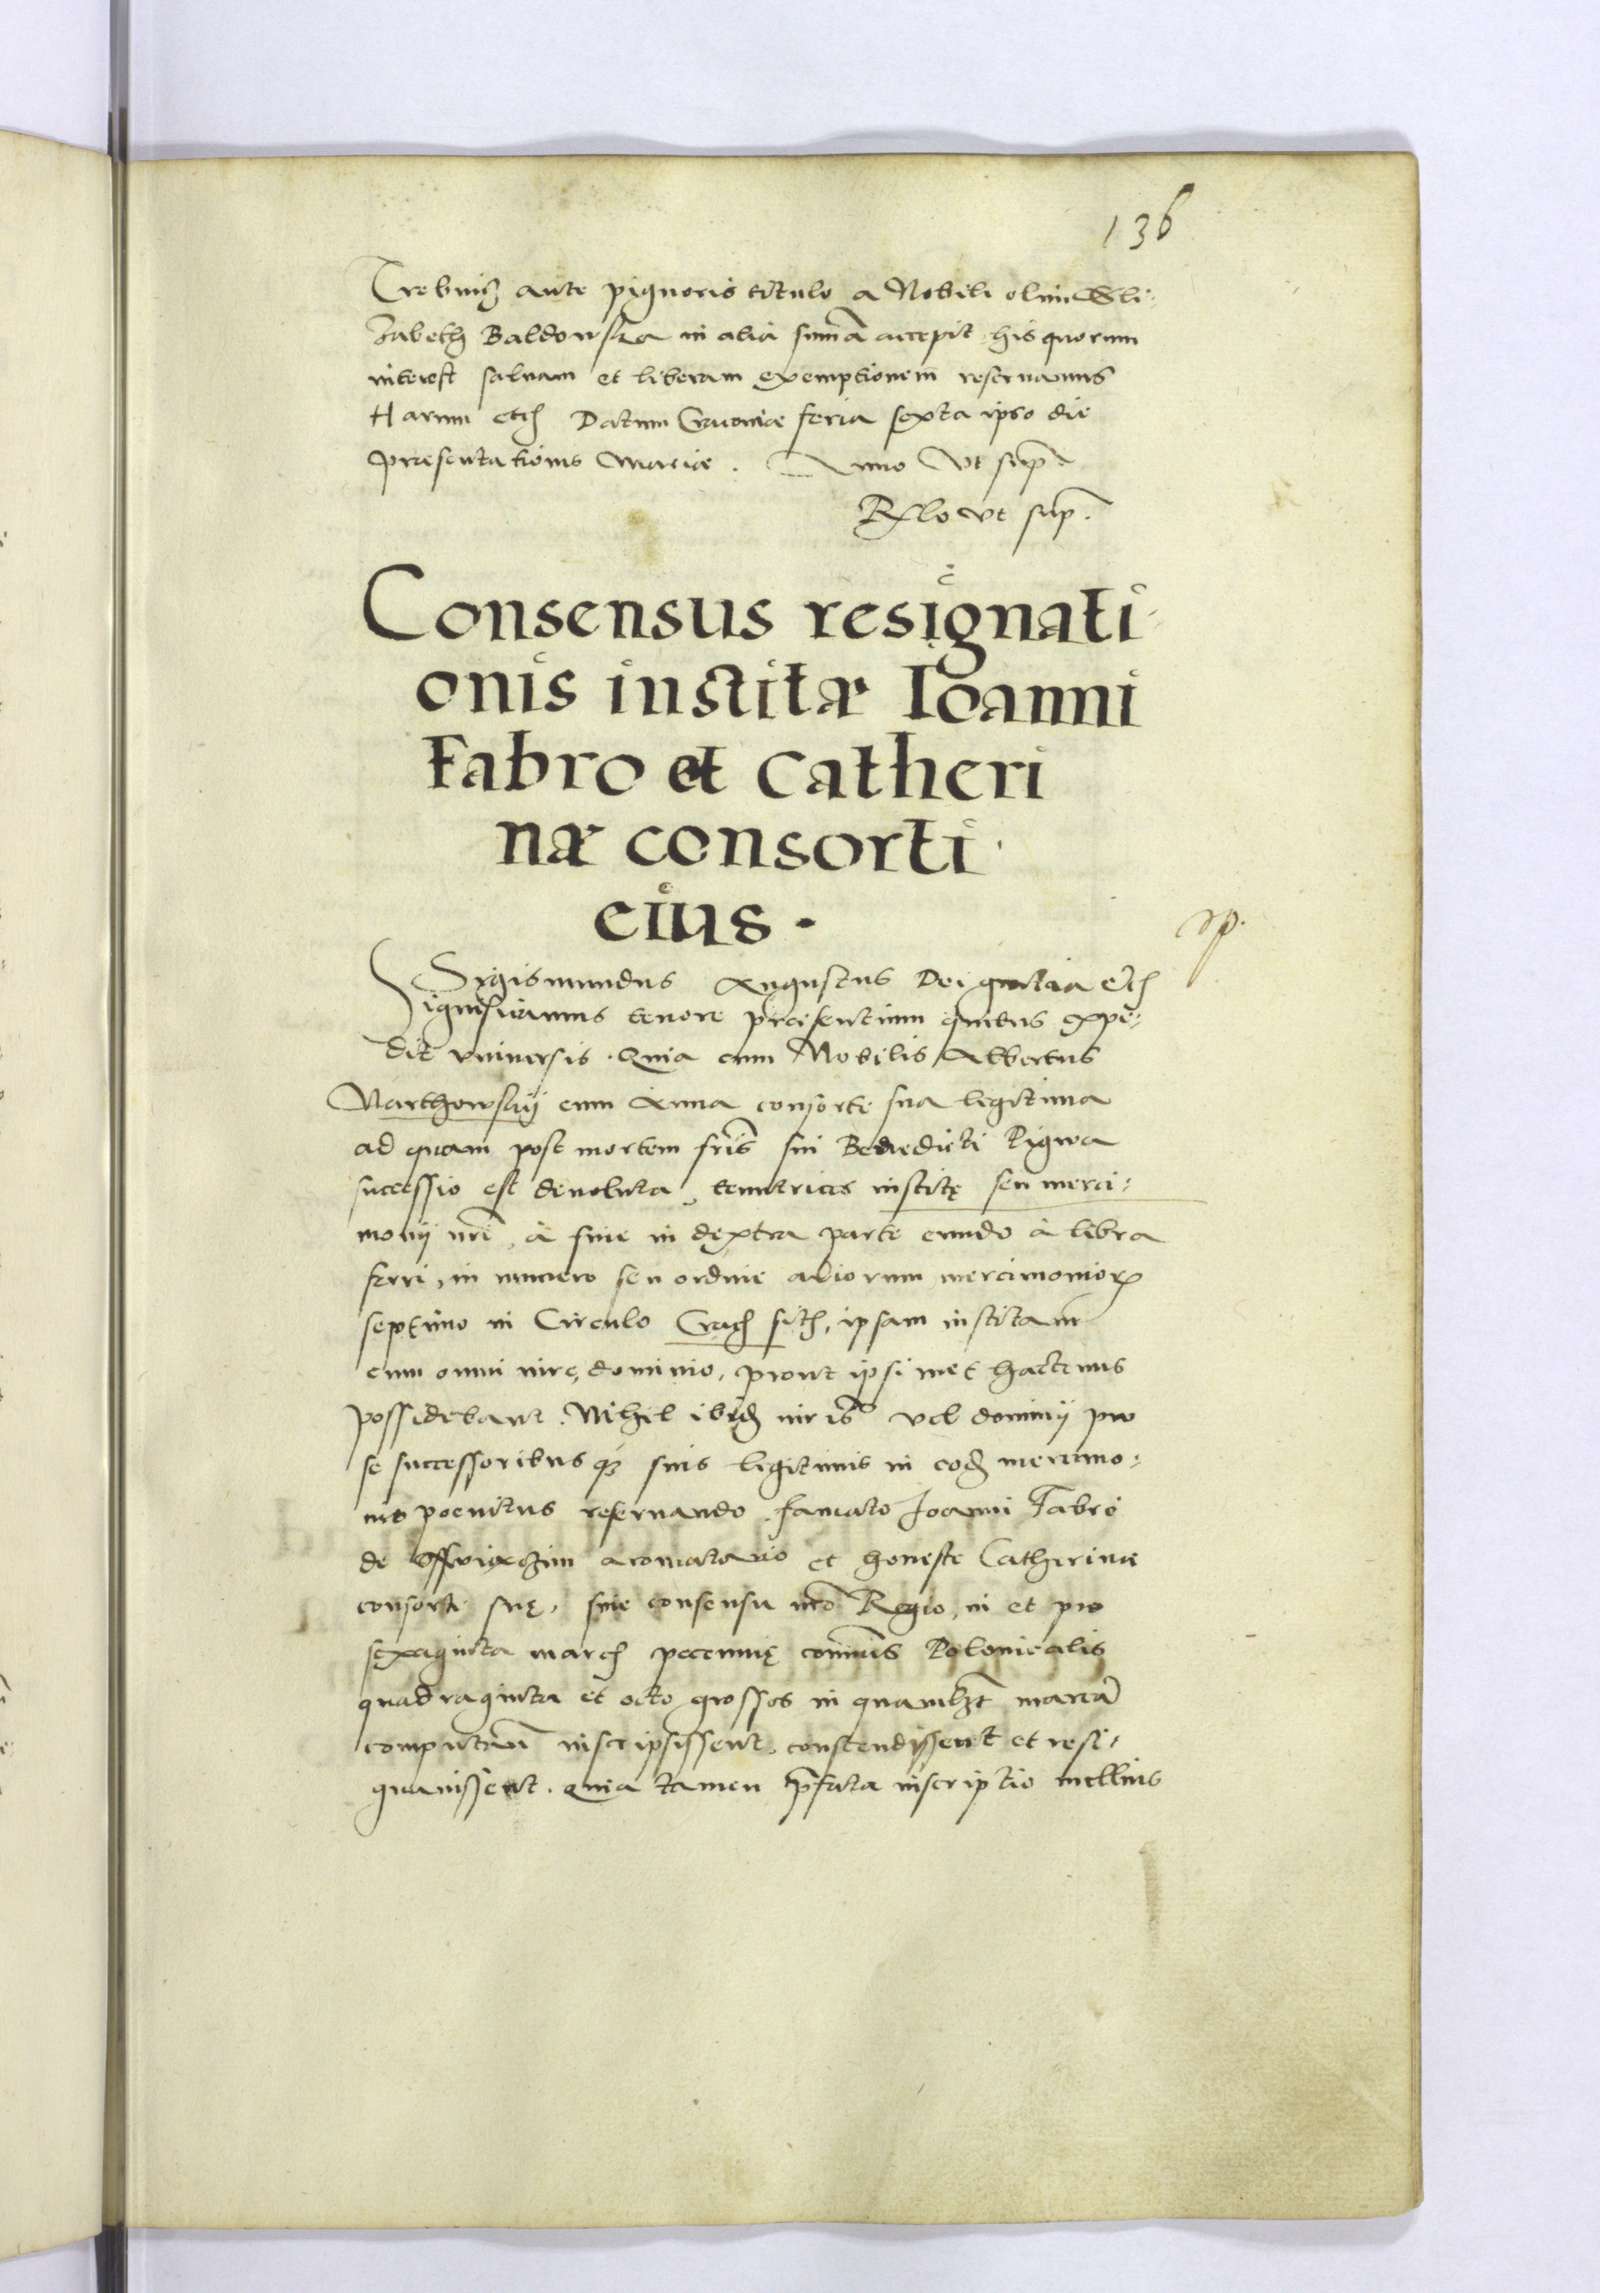 136
Trebnicz ante pignoris titulo a Nobili olim Eli-
zabeth Baldowska in alia summa accepit his quorum
interest saluam et liberam exemptionem reseruamus
Harum etc Datum Cracoviæ feria sexta ipso die
præsentationis Mariæ. Anno Vt sup.
Rlo vt sup.
Consensus resignati
onis institæ Ioanni
Fabro et Catheri
næ consorti
eius.
Sigismundus Augustus Dei gratia etc
Significamus tenore præsentium quibus expe-
dit vniuersis. Quia cum Nobilis Albertus
Marchowskij cum Anna consorte sua legitima
ad quam post mortem fris sui Benedicti
successio est deuoluta, tenutrices institę seu merci-
monij nri, a fine in dextra parte eundo à libra
ferri, in numero seu ordine aliorum mercimonior
septimo in Circulo Crac sith, ipsam institam
cum omni iure, dominio, prout ipsi met hactenus
possidebant. Nihil ibid iuris vel dominij pro
se successoribus q suis legitimis in eod mercimo-
nio poenitus reseruando. famato Joanni Fabro
de aromatario et honeste Catherinæ
consorti suę, sine consensu nro Regio, in et pro
sexaginta march pecunię cois Polonicalis
quadraginta et octo grossos in quamlzt marca
computan inscripsissent, constendissent et resi-
gnauissent. Quia tamen pfata inscriptio nullius